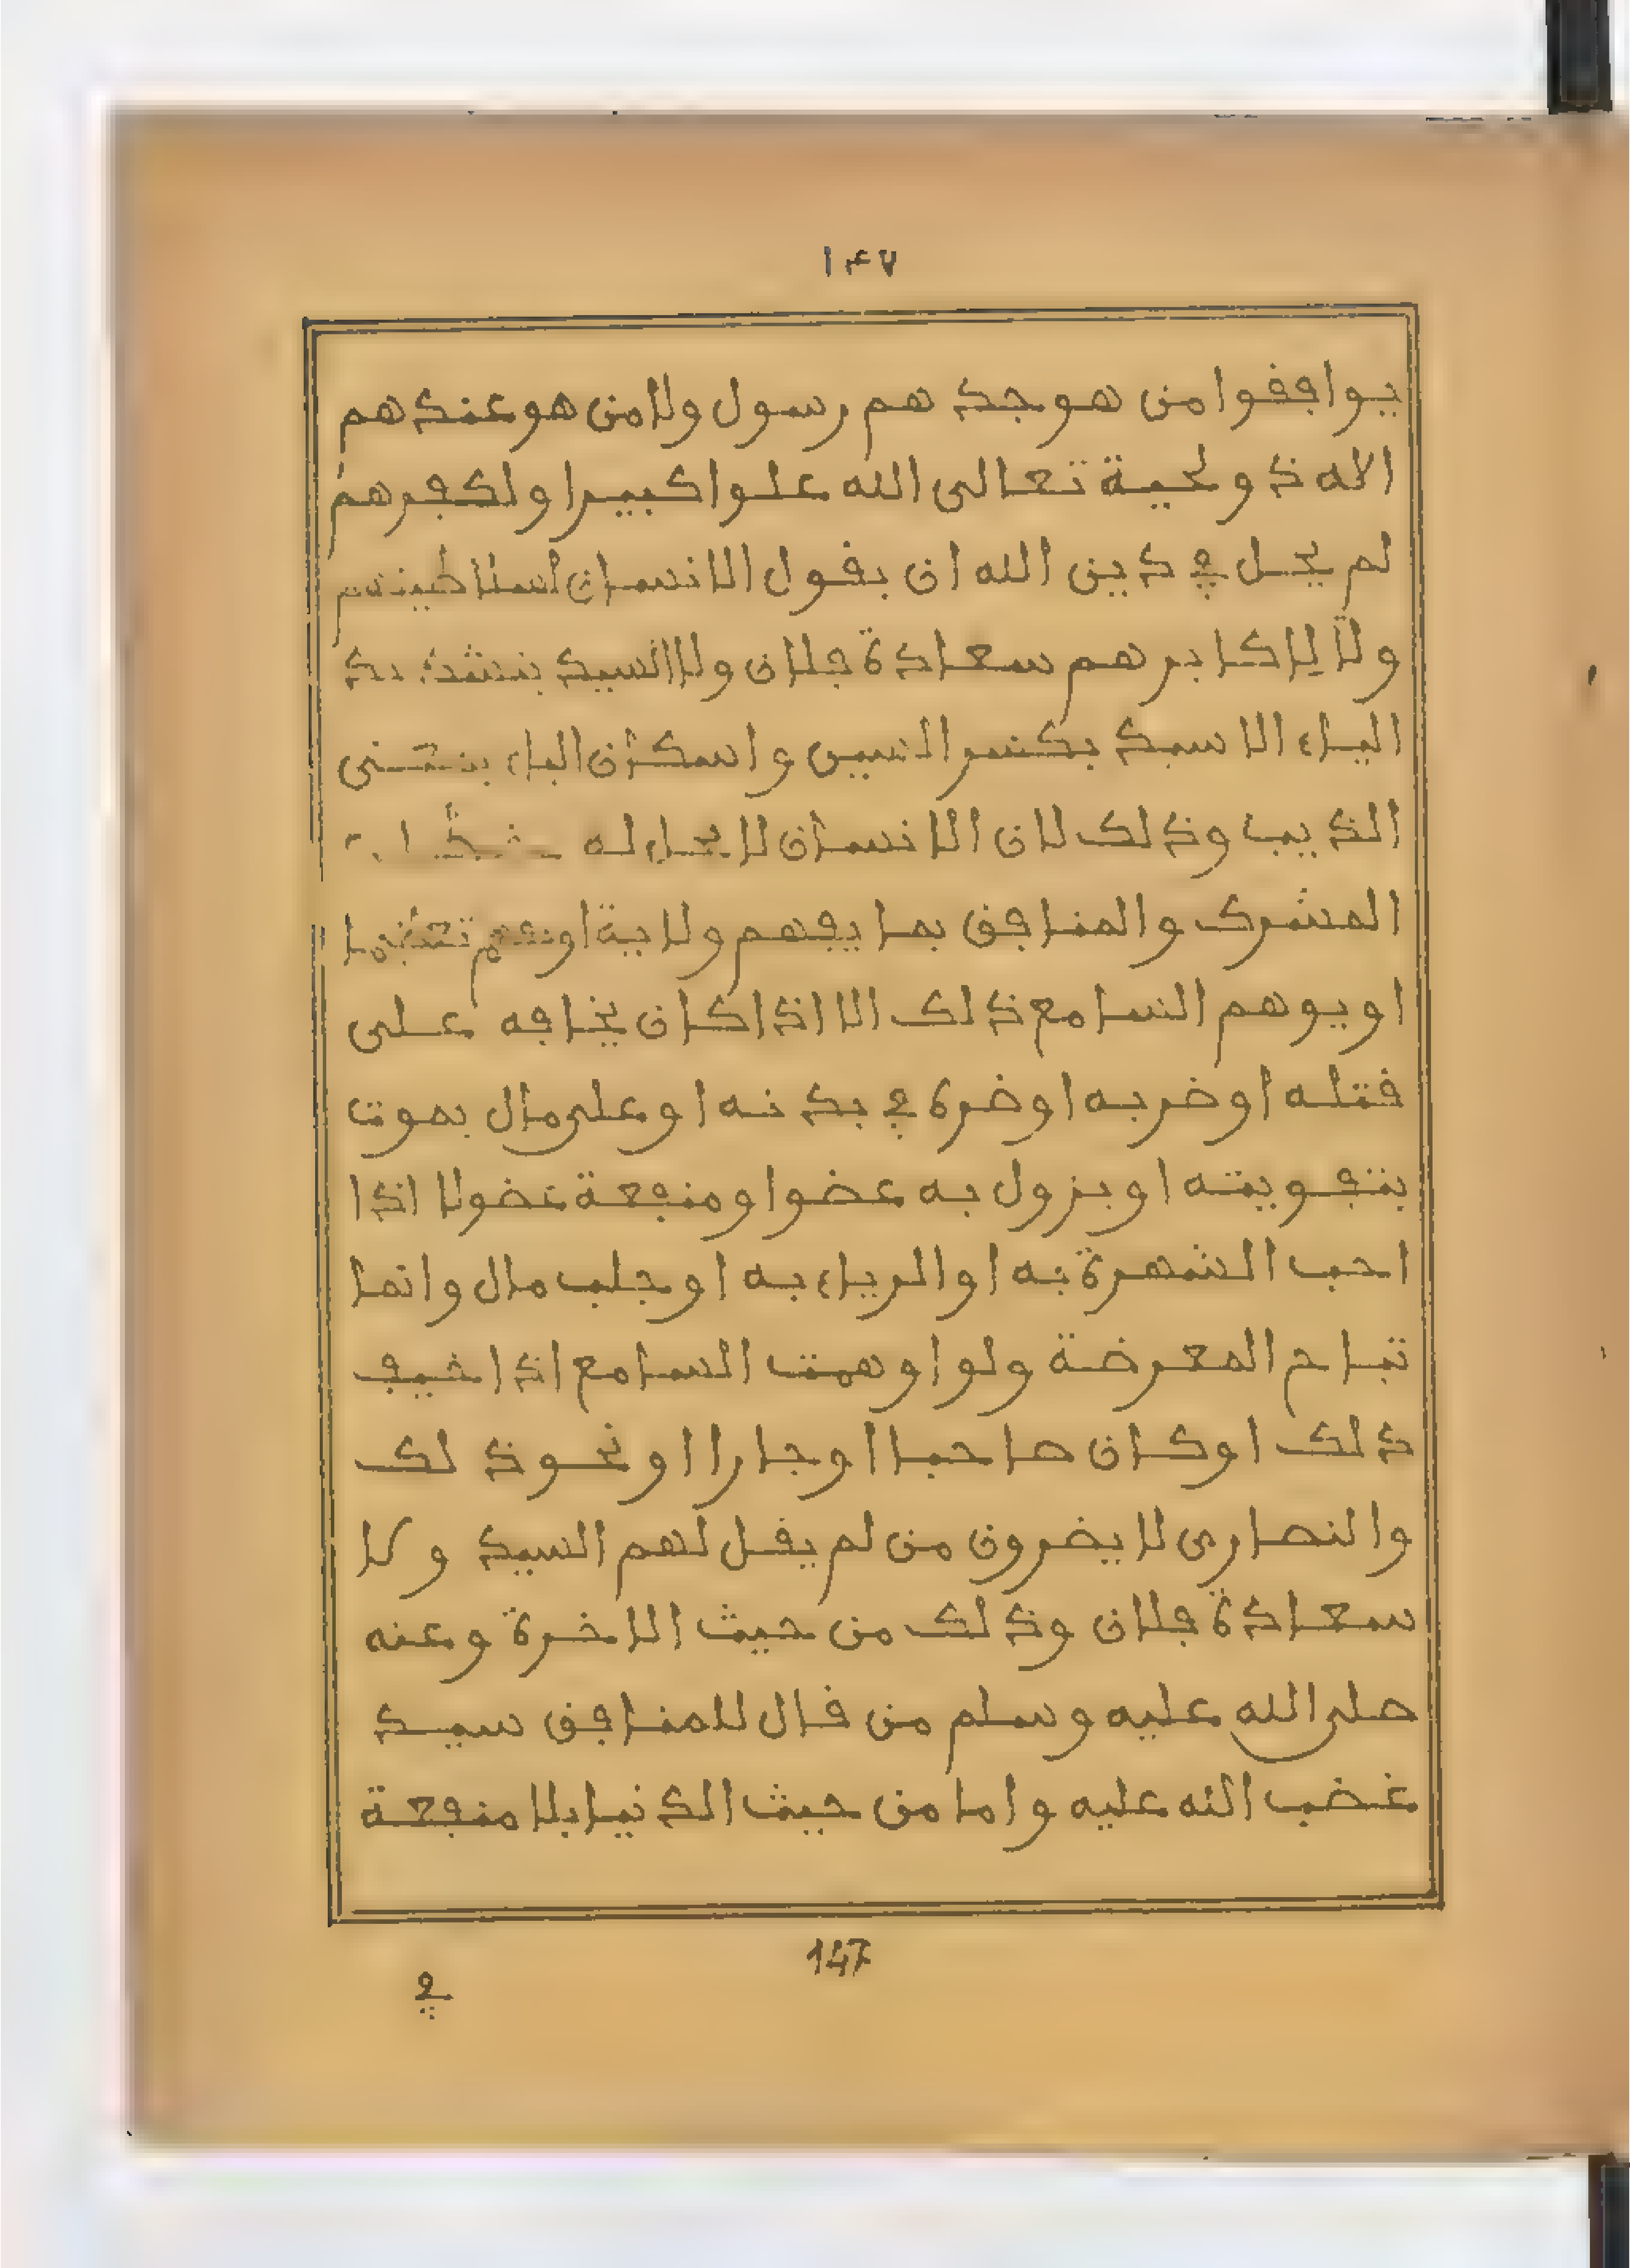 ١٤٧
يوافقوا من هو جد هم رسول ولا من هو عندهم
الاه ذو لحية تعالى الله علوا كبيرا ولكفرهم
لم يحل في دين الله ان يقول الانسان لسلاطينهم
ولا لاكابرهم سعادة فلان ولا السيد بتشديد
الياء الا سيد بكسر السين واسكان الياء بمعنى
الذيب وذلك لان الانسان لا يحل له
المشرك والمنافق بما يفهم ولاية او يفهم تعظيما
او يوهم السامع ذلك الا اذا كان يخافه على
قتله او ضربه او ضره في بدنه او على مال يموت
بتفويته او يزول به عضو او منفعة عضو لا اذا
احب الشهرة به او الرياء به او جلب مال وانما
تباح المعرضة ولو اوهمت السامع اذا خيف
ذلك او كان صاحبا او جارا او نحو ذلك
والنصارى لا يضرون من لم يقل لهم السيد ولا
سعادة فلان وذلك من حيث الاخرة وعنه
صلى الله عليه وسلم من قال للمنافق سيد
غضب الله عليه واما من حيث الدنيا بلا منفعة
147
في